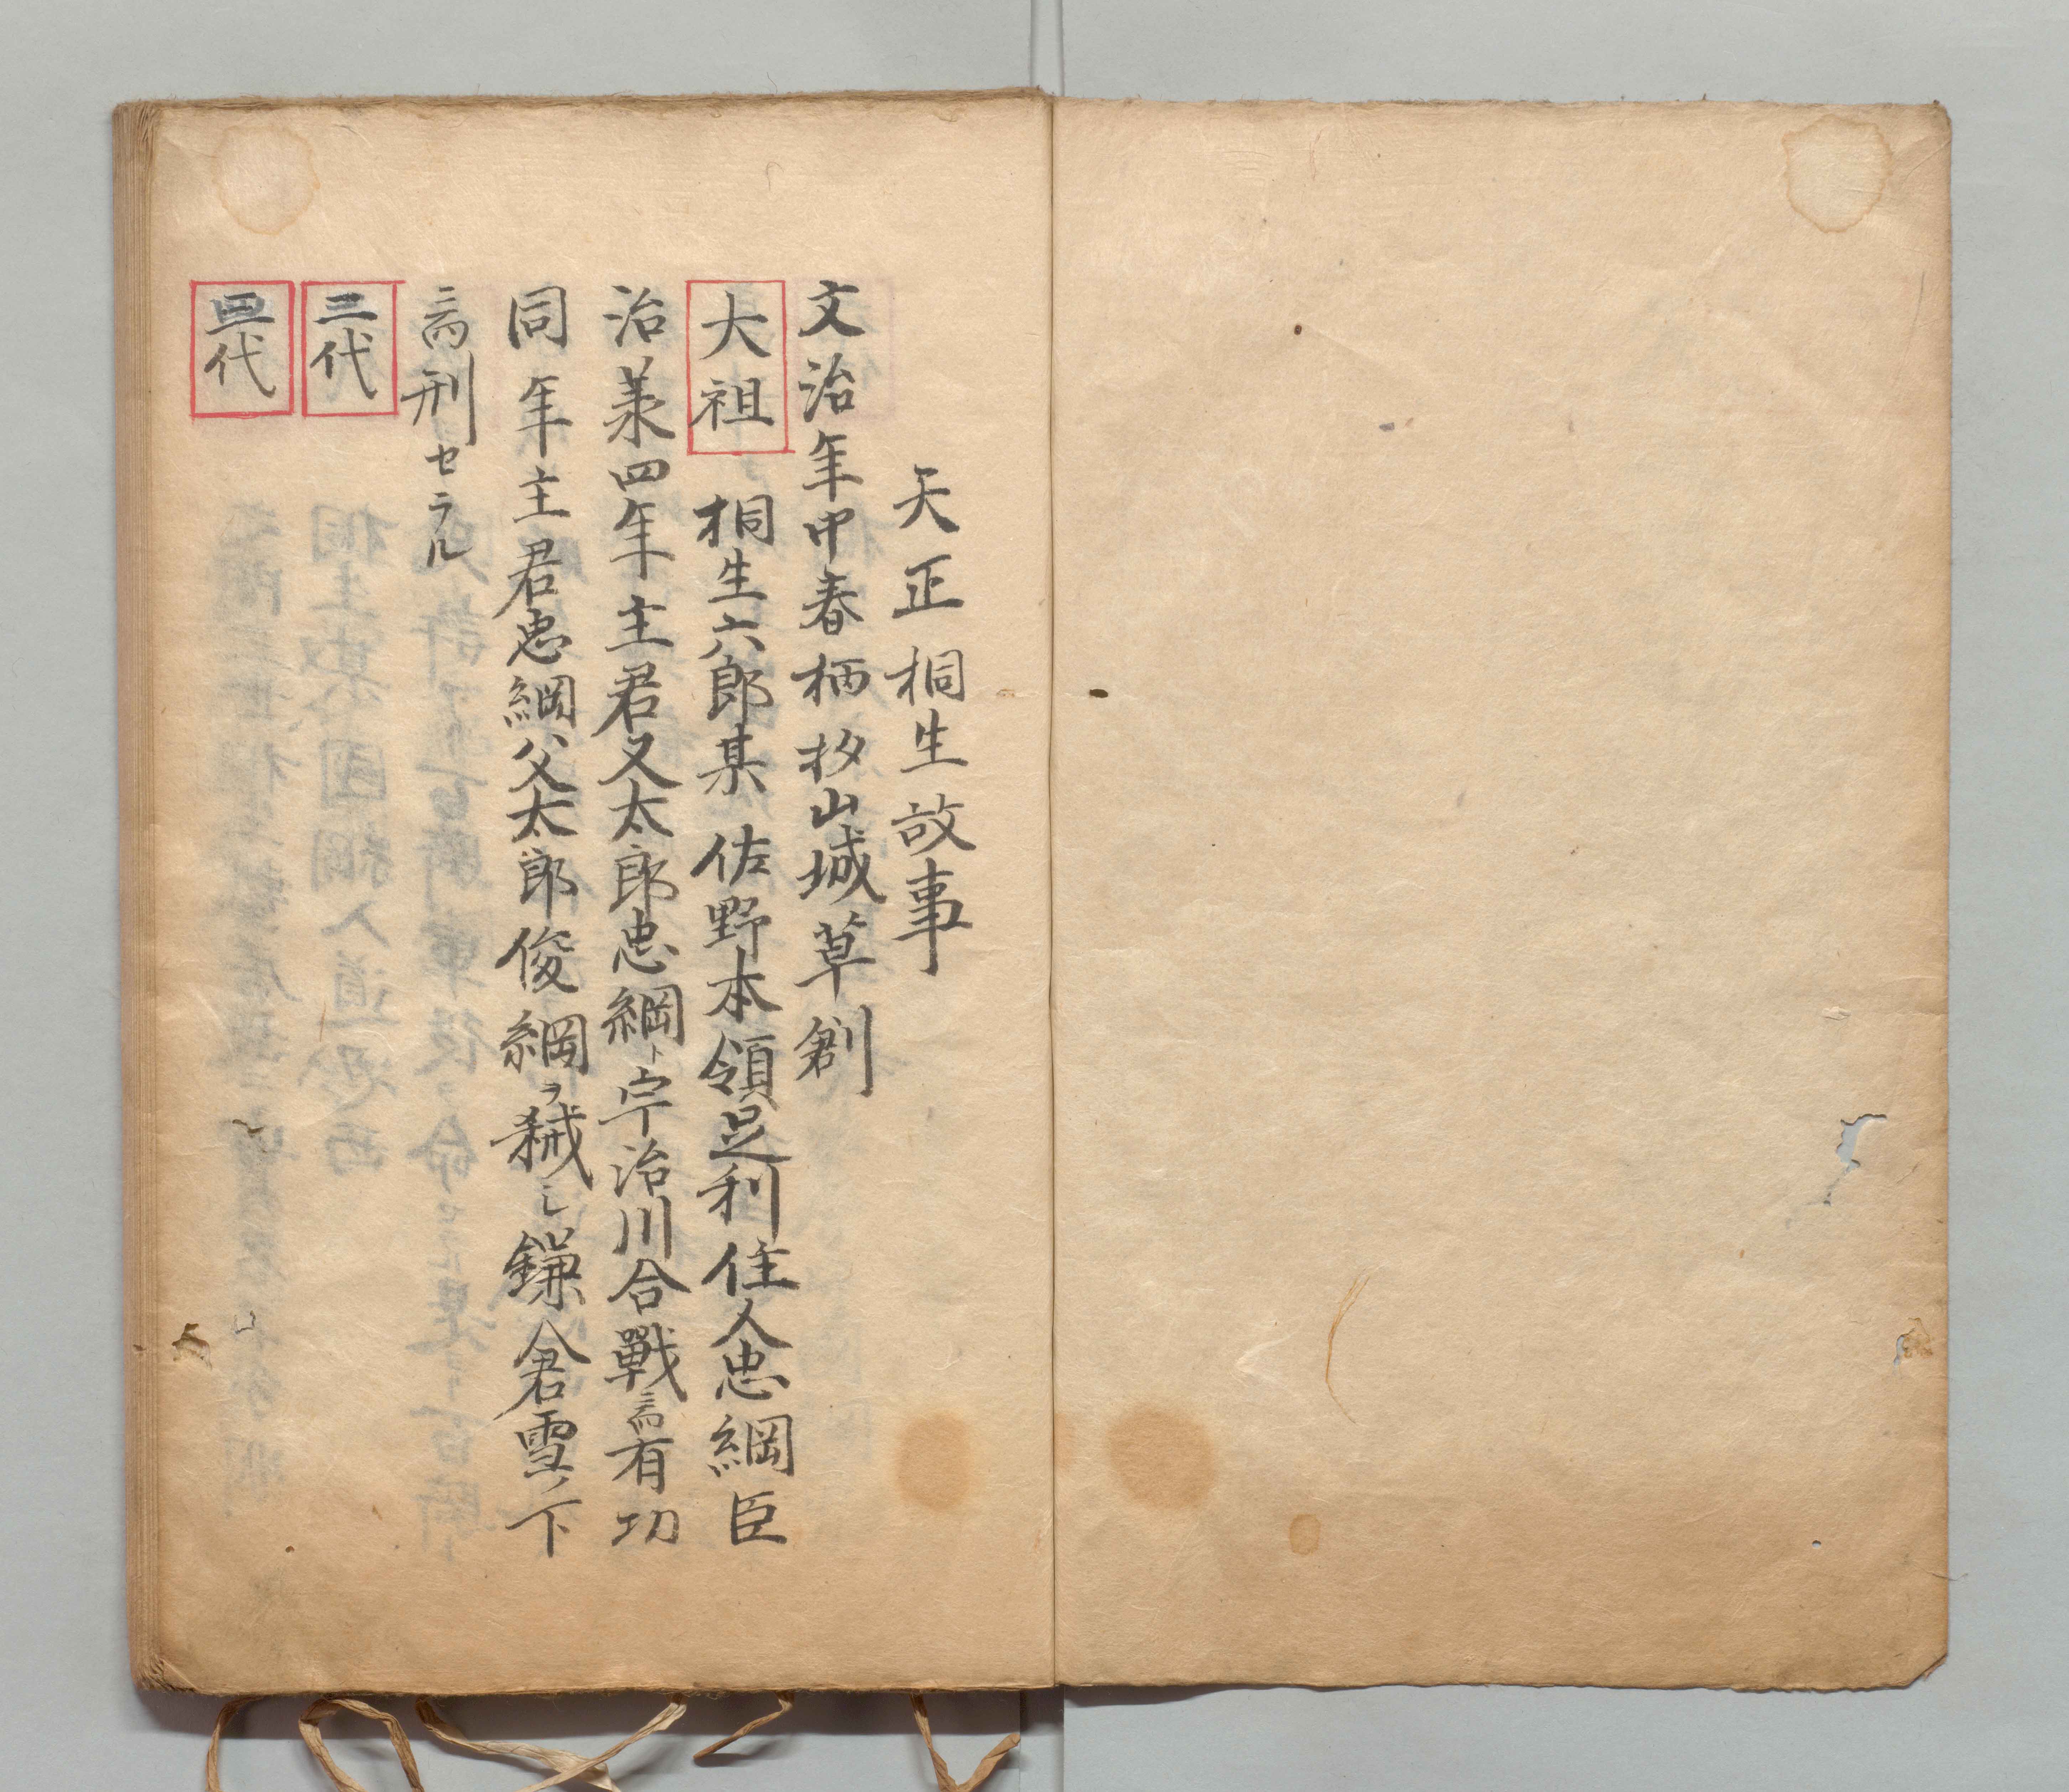 天正桐生故事
文治年中春柄杓山城草創
大祖 桐生六郎某 佐野本領足利住人忠綱臣
治承四年主君又太郎忠綱ト宇治川合戰ニ而有功
同年主君忠綱父太郎俊綱ヲ弑シ鎌倉雪ノ下
ニ而刑セラル
三代
四代